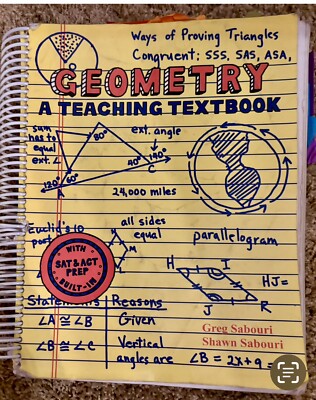 Ways of Proving Triangles
Congruent: SSS, SAS, ASA,
GEOMETRY
A TEACHING TEXTBOOK
sum
has to
equal
ext. ∠
80°
ext. angle
40°
140°
C
120°
60°
A
24,000 miles
Euclid's 10
post
all sides
equal
M
parallelogram
WITH
SAT & ACT
PREP
BUILT-IN
H
I
HJ=
J
R
Statements
Reasons
∠A ≅ ∠B
Given
∠B ≅ ∠C
Vertical
angles are
∠B = 2x+9 =
Greg Sabouri
Shawn Sabouri